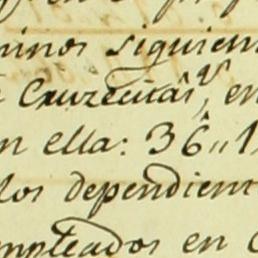 minos siguien
Cruzecitas, en
n ella: 36 " 1
los dependient
mpleados en C